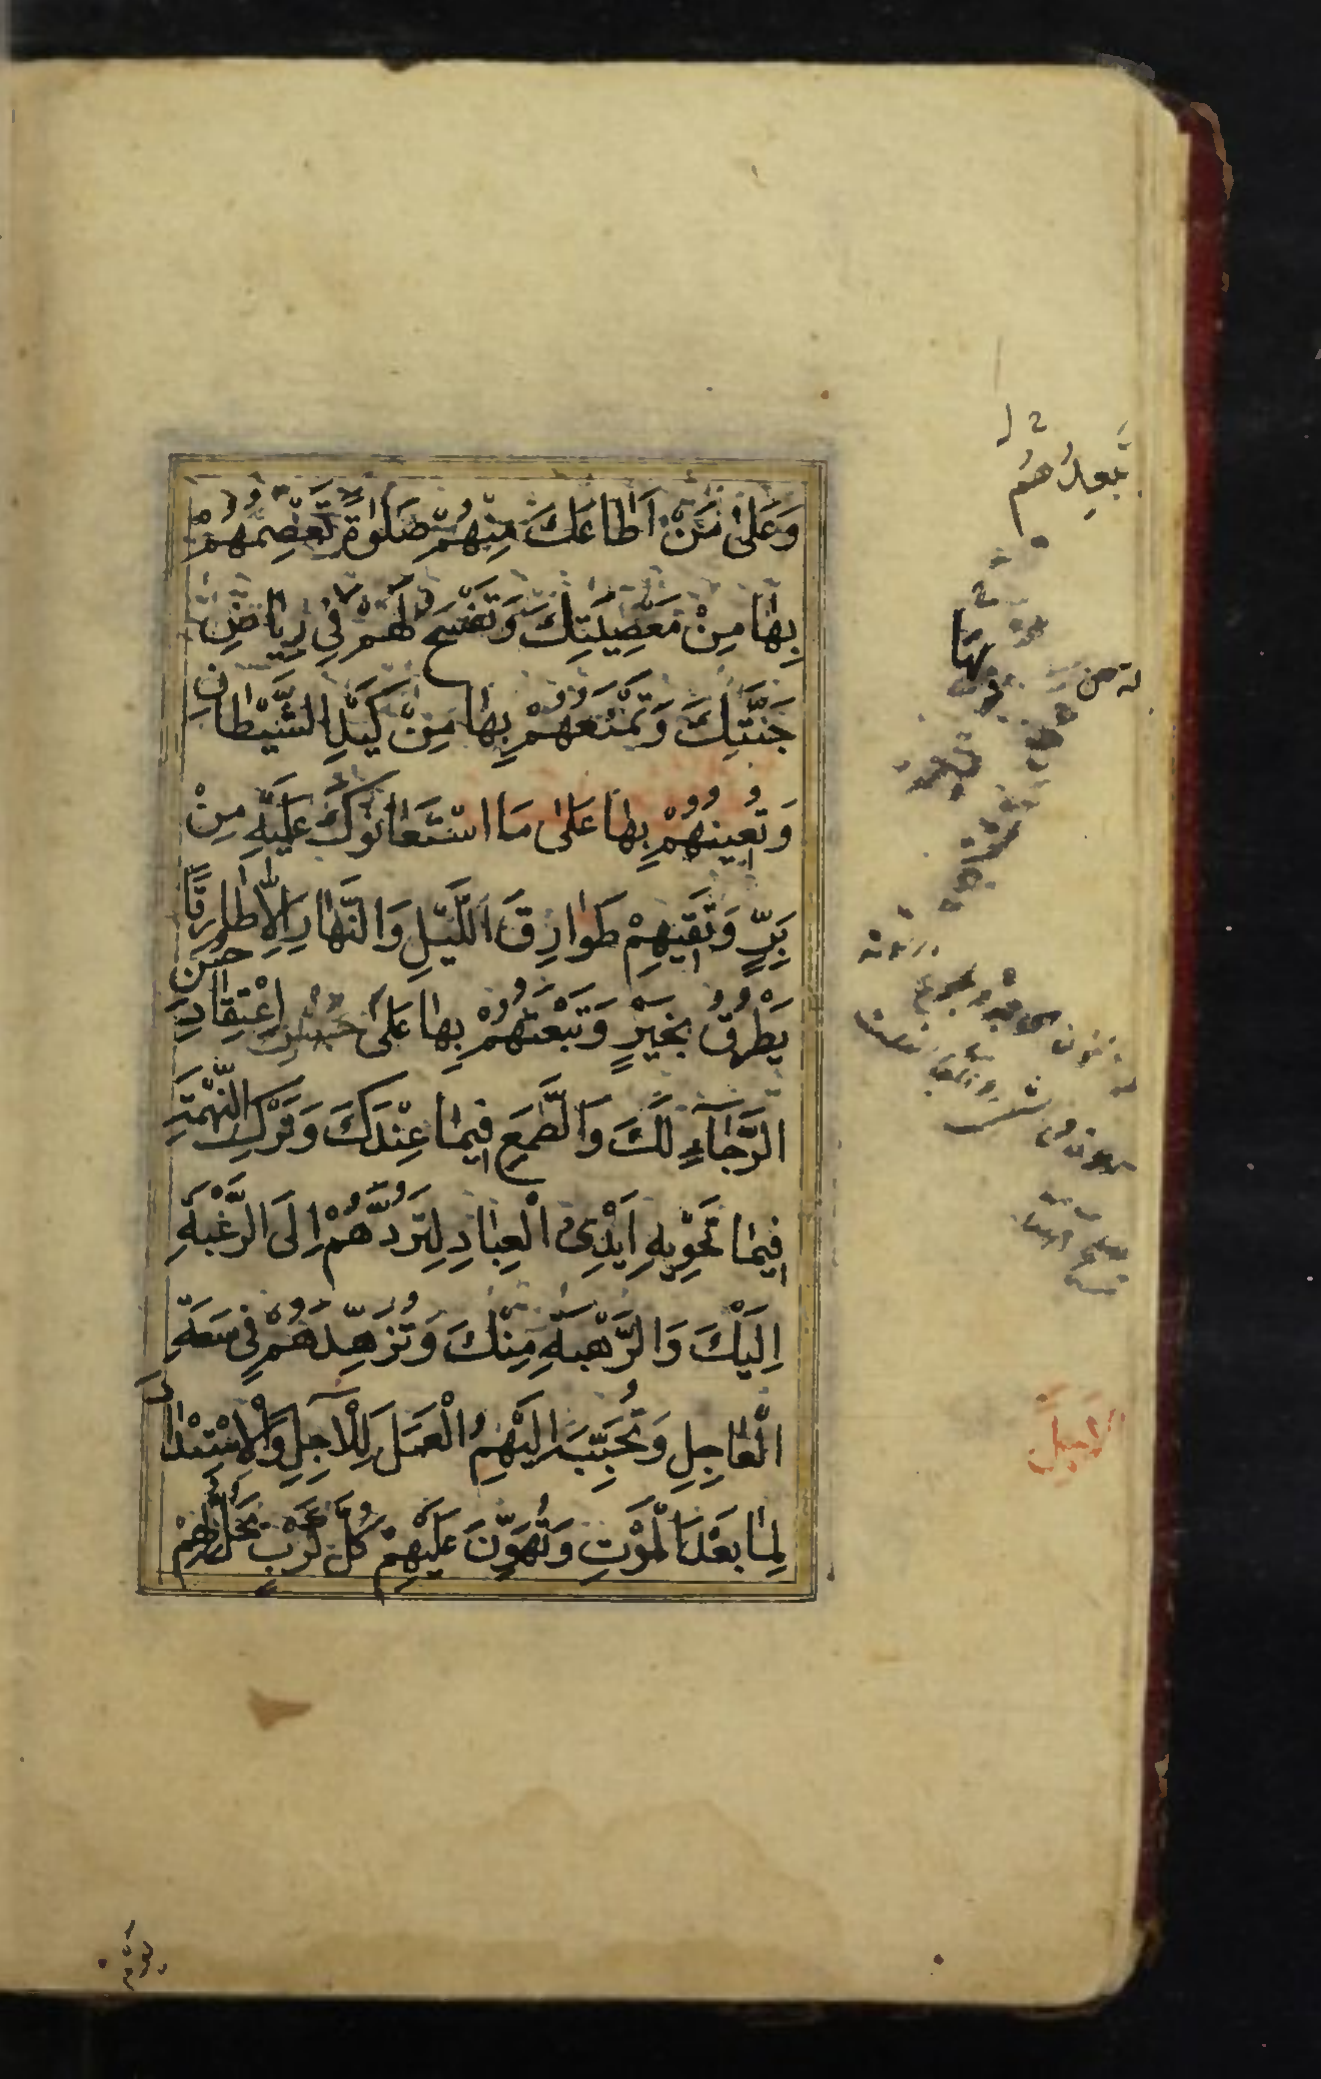 وَعَلىٰ مَنْ اَطٰاعَكَ مِنْهُمْ صَلٰوةً تَعْصِمُهُمْ
بِهٰا مِنْ مَعْصِيَتِكَ وَتَفْسَحُ لَهُمْ فِي رِيٰاضِ
جَنَّتِكَ وَتَمْنَعُهُمْ بِهٰا مِنْ كَيْدِ الشَّيْطٰانِ
وَتُعِينُهُمْ بِهٰا عَلىٰ مَا اسْتَعٰانُوكَ عَلَيْهِ مِنْ
بِرٍّ وَتَقِيهِمْ طَوٰارِقَ اللَّيْلِ وَالنَّهٰارِ اِلّٰا طٰارِقًا
يَطْرُقُ بِخَيْرٍ وَتَبْعَثُهُمْ بِهٰا عَلىٰ حُسْنِ اعْتِقٰادِ
حُسْنِ
الرَّجٰآءِ لَكَ وَالطَّمَعِ فِيمٰا عِنْدَكَ وَتَرْكِ التُّهْمَةِ
فِيمٰا تَحْوِيهِ اَيْدِى الْعِبٰادِ لِتَرُدَّهُمْ اِلَى الرَّغْبَةِ
اِلَيْكَ وَالرَّهْبَةِ مِنْكَ وَتُزَهِّدَهُمْ فِي سَعَةِ
الْعٰاجِلِ وَتُحَبِّبَ اِلَيْهِمُ الْعَمَلَ لِلْآجِلِ وَالْاِسْتِعْدٰادَ
لِمٰا بَعْدَ الْمَوْتِ وَتُهَوِّنَ عَلَيْهِمْ كُلَّ كَرْبٍ يَحُلُّ بِهِمْ
تُبْعِدُهُمْ
بِهَا